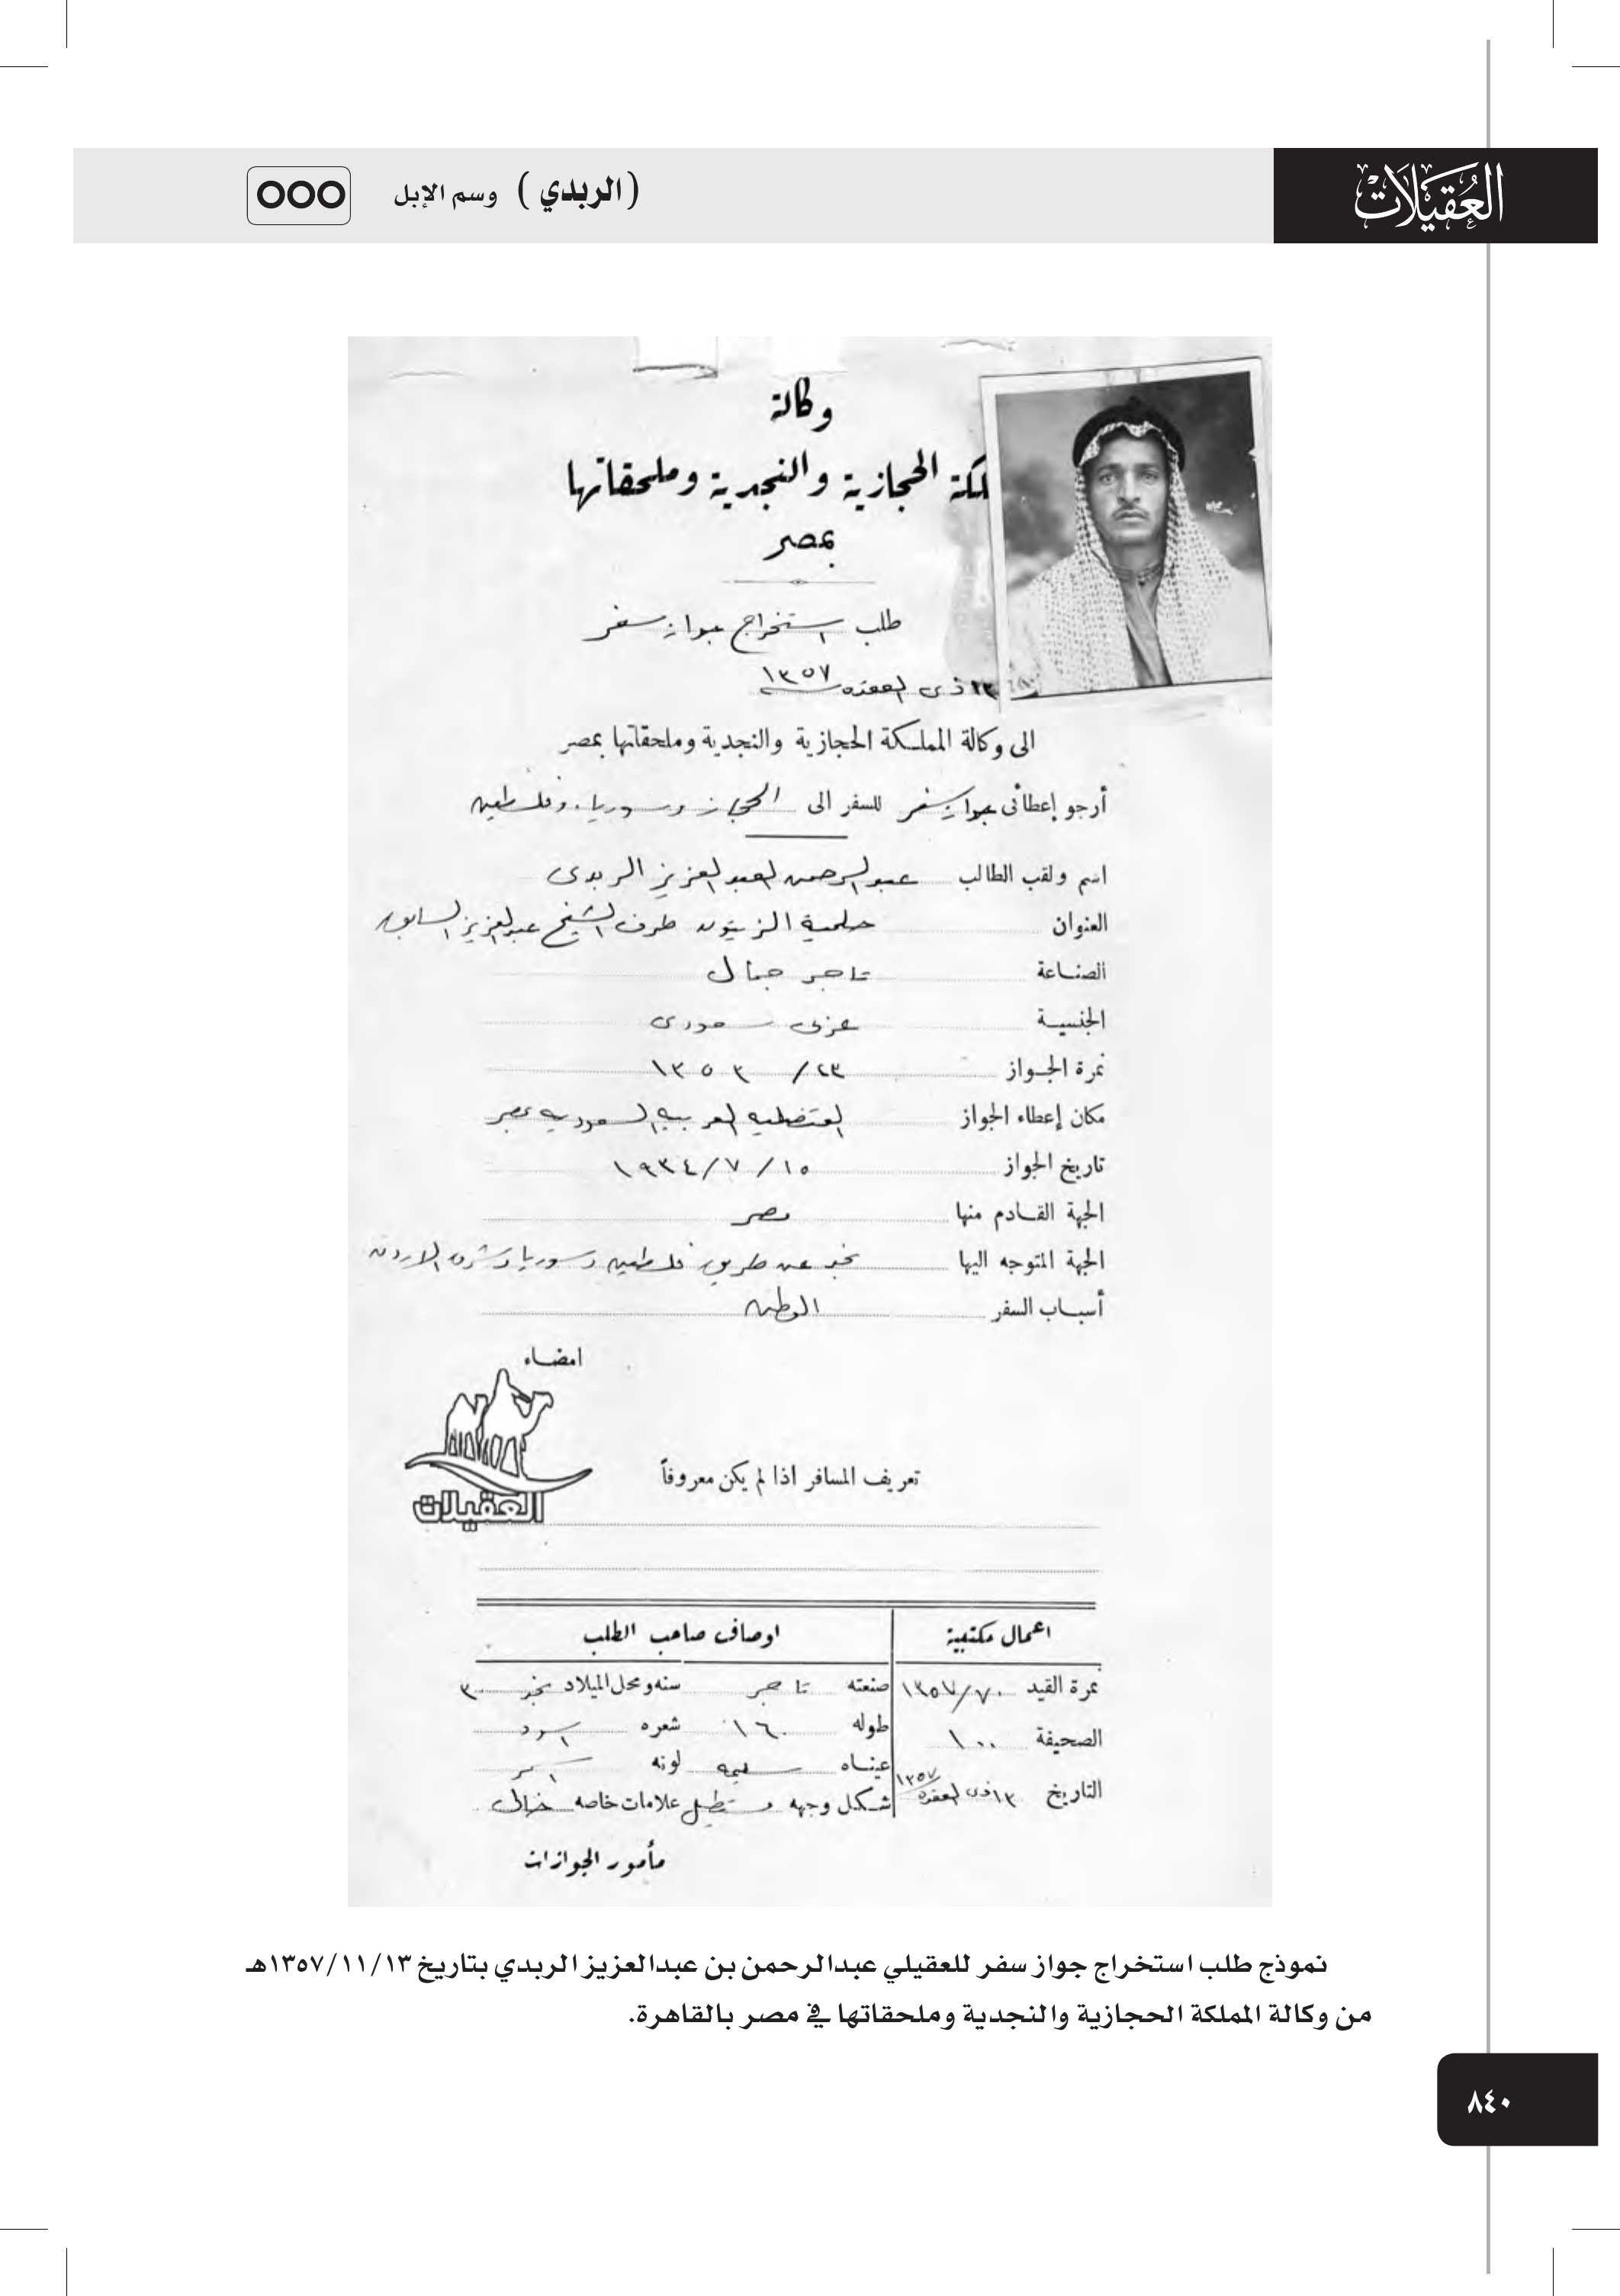 العُقَيْلَاتْ
( الربدي ) وسم الإبل
وكالة
لكة الحجازية والنجدية وملحقاتها
بمصر
طلب استخراج جواز سفر
١٣ ذى القعدة ١٣٥٧
الى وكالة المملكة الحجازية والنجدية وملحقاتها بمصر
أرجو إعطائى جواز سفر للسفر الى الحجاز وسوريا وفلسطين
اسم ولقب الطالب عبد الرحمن العبد العزيز الربدى
العنوان حلمية الزيتون طرف الشيخ عبد العزيز السابق
الصناعة تاجر جمال
الجنسية عربى سعودى
نمرة الجواز ٢٣/ ١٣٥٣
مكان إعطاء الجواز القنصلية العربية السعودية بمصر
تاريخ الجواز ١٥ / ٧ / ١٩٣٤
الجهة القادم منها مصر
الجهة المتوجه اليها نجد عن طريق فلسطين وسوريا وشرق الاردن
أسباب السفر الوطن
امضاء
العقيلات
تعريف المسافر اذا لم يكن معروفاً
اعمال مكتبية اوصاف صاحب الطلب
نمرة القيد ٧٠/ ١٣٥٧ صنعته تاجر سنه ومحل الميلاد نجد ٣٠
الصحيفة ١٠٠ طوله ١٦٠ شعره اسود
عيناه سليمه لونه اسمر
التاريخ ١٣ ذى القعدة ١٣٥٧ شكل وجهه مستطيل علامات خاصه خالى
مأمور الجوازات
نموذج طلب استخراج جواز سفر للعقيلي عبدالرحمن بن عبدالعزيز الربدي بتاريخ ١٣٥٧/١١/١٣هـ
من وكالة المملكة الحجازية والنجدية وملحقاتها في مصر بالقاهرة.
٨٤٠